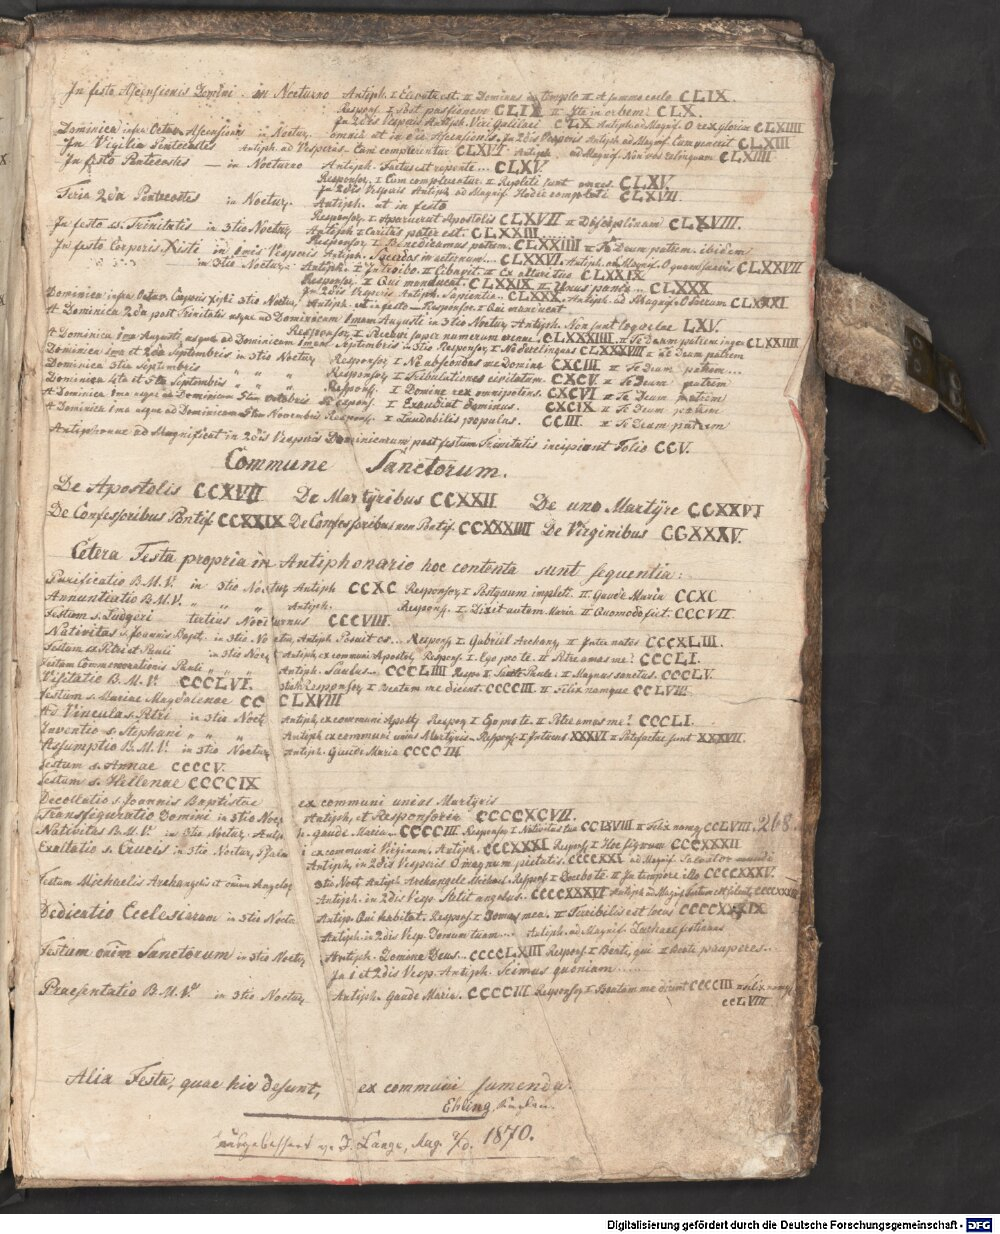 In festo Ascensionis Domini in Nocturno Antiph. I Elevata est. II Dominus in templo III A summo coelo CLIX.
Respons. I Post passionem CLIX II Ite in orbem? CLX.
In 2dis Vesperis Antiph. Viri Galilaei CLX Antiph. ad Magnif. O rex gloriae CLXIIII
Dominica infra Octav. Ascensionis in Noctur. omnia ut in die Ascensionis. In 2dis Vesperis Antiph. ad Magnif. Cum venerit CLXIII
In Vigilia Pentecostes Antiph. ad Vesperis. Cum complerentur CLXVI Antiph. ad Magnif. Non vos relinquam CLXIIII
In festo Pentecostes — in Nocturno Antiph. Factus est repente... CLXV.
Respons. I Cum complerentur. II Repleti sunt omnes. CLXV.
In 2dis Vesperis Antiph. ad Magnif. Hodie completi CLXVII.
Feria 2da Pentecostes in Noctur. Antiph. ut in festo
Respons. I Aparuerut Apostolis CLXVII II Disciplinam CLXVIII.
In festo ss. Trinitatis in 3tio Noctur. Antiph I Caritas pater est. CLXXIII
Respons. I Benedicamus patrem. CLXXIIII II Te Deum patrem. ibidem
In festo Corporis Xsti in 1mis Vesperis Antiph. Sacerdos in aeternum... CLXXVI. Antiph. ad Magnif. O quam suavis CLXXVII
in 3tio Noctur. Antiph. I Introibo. II Cibavit. III Ex altari tuo CLXXIX.
Respons. I Qui manducat. CLXXIX II Unus panis... CLXXX
In 2dis Vesperis Antiph. Sapientia.. CLXXX. Antiph. ad Magnif. O sacrum CLXXXI
Dominica infra Octav. Corporis Xsti 3tio Noctur. Antiph. ut in festo — Respons. I Qui manducat
A Dominica 2da post Trinitatis usque ad Dominicam 1mam Augusti in 3tio Noctur. Antiph. Non sunt loquelae LXV.
Respons. I Recessi super numerum arenae. CLXXXIIII. II Te Deum patrem ingen CLXXIIII
A Dominica 1ma Augusti usque ad Dominicam 1mam Septembris in 3tio Respons. I Ne derelinquas CLXXXVIII II Te Deum patrem
Dominica 1ma et 2da Septembris in 3tio Noctur Respons. I Ne abscondas me Domine CXCIII II Te Deum patrem...
Dominica 3tia Septembris " " " Respons. I Tribulationes civitatum. CXCV. II Te Deum patrem
Dominica 4ta et 5ta Septembris " " " Respons. I Domine rex omnipotens. CXCVI II Te Deum patrem
A Dominica 1ma usque ad Dominicam 5tam Octobris Respons. I Exaudiat Dominus. CXCIX II Te Deum patrem
A Dominica 1ma usque ad Dominicam 5tam Novembris Respons. I Laudabilis populus. CCIII. II Te Deum patrem
Antiphonae ad Magnificat in 2dis Vesperis Dominicarum post festum Trinitatis incipiunt Folio CCV.
Commune Sanctorum.
De Apostolis CCXVII De Martÿribus CCXXII De uno Martÿre CCXXVI
De Confessoribus Pontif. CCXXIX De Confessoribus non Pontif. CCXXXIIII De Virginibus CCXXXV.
Cetera Festa propria in Antiphonario hoc contenta sunt sequentia:
Purificatio B.M.V. in 3tio Noctur Antiph CCXC Respons. I Postquam impleti. II Gaude Maria CCXC
Annuntiatio B.M.V. " " " Antiph. Respons. I. Dixit autem Maria II Quomodo fiet. CCCVII
Festum s. Ludgeri tertius Nocturnus CCCVIII.
Nativitas s. Joannis Bapt. in 3tio Noctur. Antiph. Posuit os... Respons. I. Gabriel Archang. II Inter natos CCCXLIII.
Festum ss Petri et Pauli in 3tio Noct Antiph. ex communi Apostol. Respons. I. Ego pro te. II Petre amas me? CCCLI.
Festum Commemorationis Pauli " " " Antiph. Saulus.. CCCLIIII Respo I Sancte Paule. II Magnus sanctus. CCCLV.
Visitatio B.M.V. CCCLVI. 3tio Respons. I Beatam me dicent. CCCCIII II Felix namque CCLVIII
Festum s. Mariae Magdalenae CCCLXVIII
Ad Vincula s. Petri in 3tio Noct Antiph. ex communi Apost. Respons. I Ego pro te. II Petre amas me? CCCLI.
Inventio s. Stephani " " " Antiph ex communi unius Martyris — Respons. I Intuens XXXVI II Patefactae sunt XXXVII.
Assumptio B.M.V. in 3tio Noctur. Antiph. Gaude Maria CCCCIII
Festum s. Annae CCCCV.
Festum s. Hellenae CCCCIX
Decollatio s. Joannis Baptistae ex communi unius Martyris
Transfiguratio Domini in 3tio Noct Antiph. et Responsoria CCCCXCVII.
Nativitas B.M.V. in 3tio Noctur. Antiph. Gaude Maria... CCCCIII Respons. I Nativitas tua CCLXVIII II Felix namq CCLVIII. 268
Exaltatio s. Crucis in 3tio Noctur, Psalmi ex communi Virginum. Antiph. CCCCXXXI Respons. I Hoc signum CCCCXXXII
Antiph. in 2dis Vesperis O magnum pietatis. CCCCXXXI ad Magnif. Salvator mundi
Festum Michaelis Archangeli et omnium Angelor 3tio Noct. Antiph. Archangele Michael. Respons. I Docebo te. II In tempore illo CCCCXXXV.
Antiph. in 2dis Vesp. Stetit angelus.. CCCCXXXVI Antiph. ad Magnif.
Dedicatio Ecclesiarum in 3tio Noctu Antiph. Qui habitat. Respons. I Domus mea. II Terribilis est locus CCCCXXXIX
Antiph. in 2dis Vesp. Domum tuam... Antiph. ad Magnif. Zachaee festinans
Festum omnium Sanctorum in 3tio Noctur. Antiph. Domine Deus... CCCCLXIII Respons. I Beati, qui II Beati pauperes...
In 1 et 2dis Vesp. Antiph. Scimus quoniam......
Praesentatio B.M.V. in 3tio Noctur. Antiph. Gaude Maria. CCCCIII Respons. I Beatam me dicent CCCCIII II Felix namq
CCLVIII
Alia Festa, quae hic desunt, ex communi sumenda.
Ehling,
ausgebessert v. J. Lange, Aug. 1870.
Digitalisierung gefördert durch die Deutsche Forschungsgemeinschaft - DFG